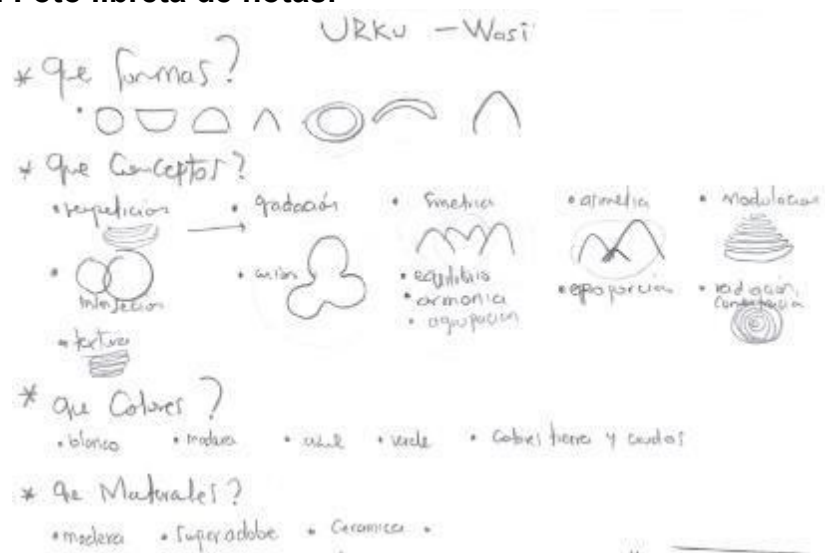 Foto libreta de notas.
URKU - Wasi
* Que formas?
* Que Conceptos?
• repeticion • gradación • Simetria • asimetria • Modulacion
• Interseccion • union • equilibrio • proporcion • radiación,
• armonia
• agrupacion
• textura
* Que Colores?
• blanco • madera • azul • verde • Colores tierra y crudos
* Que Materiales?
• madera • Super adobe • Ceramica •